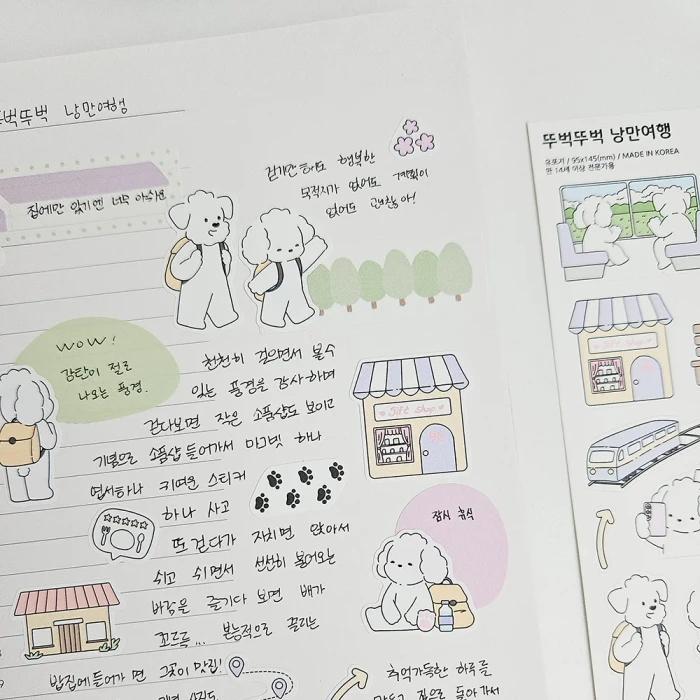 뚜벅뚜벅 낭만여행
집에만 있기엔 너무 아쉬운
걷기만 해도 행복한
목적지가 없어도 계획이
없어도 괜찮아!
WOW!
감탄이 절로
나오는 풍경.
천천히 걸으면서 볼 수
있는 풍경을 감사하며
걷다보면 작은 소품샵도 보이고
기념으로 소품샵 들어가서 마그넷 하나
엽서하나 키여운 스티커
하나 사고
또 걷다가 지치면 앉아서
쉬고 쉬면서 선선히 불어오는
바람을 즐기다 보면 배가
꼬르륵... 본능적으로 끌리는
밥집에 들어가 면 그곳이 맛집!
gift shop
잠시 휴식
추억가득한 하루를
뚜벅뚜벅 낭만여행
유포지 / 95x145(mm) / MADE IN KOREA
만 14세 이상 전문가용
Gift shop